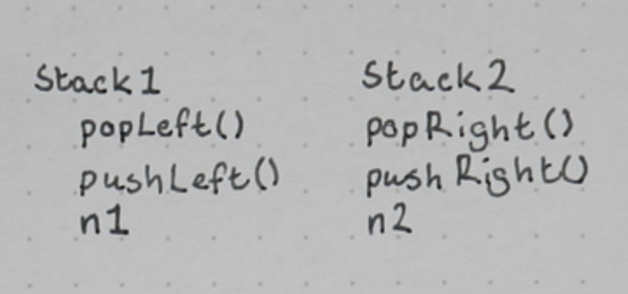 Stack 1
popLeft()
pushLeft()
n1
Stack 2
popRight()
pushRight()
n2